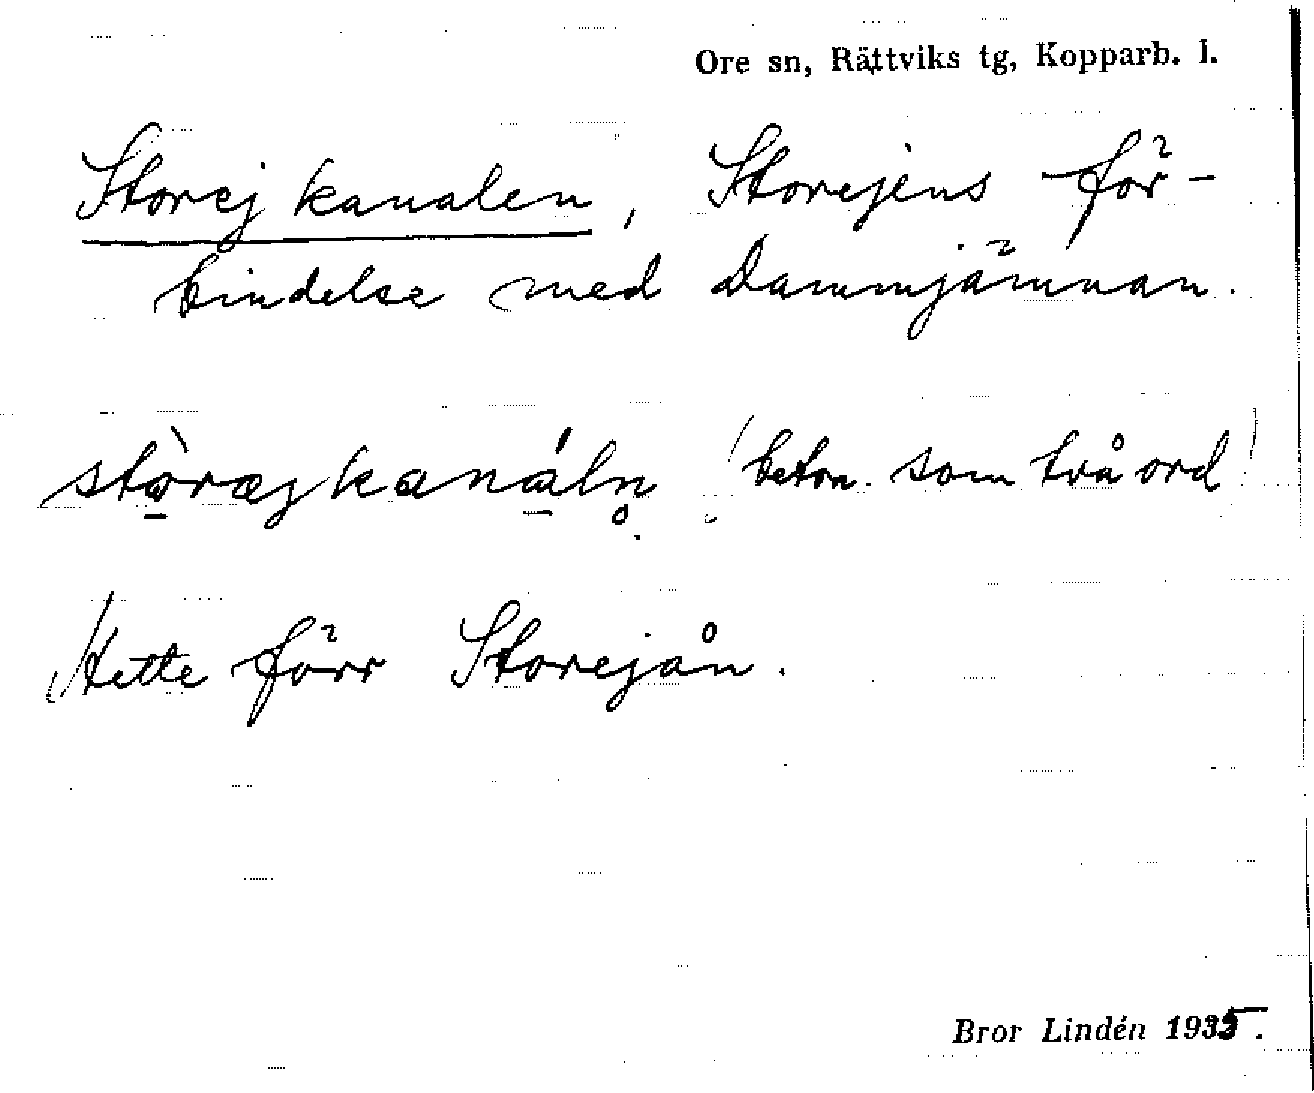 Ore sn, Rättviks tg, Kopparb. l.
Storejkanalen, Storejens för-
bindelse med Dammjämnan.
stòræjkanáln̥ (beton. som två ord)
Hette förr Storejån.
Bror Lindén 1935.